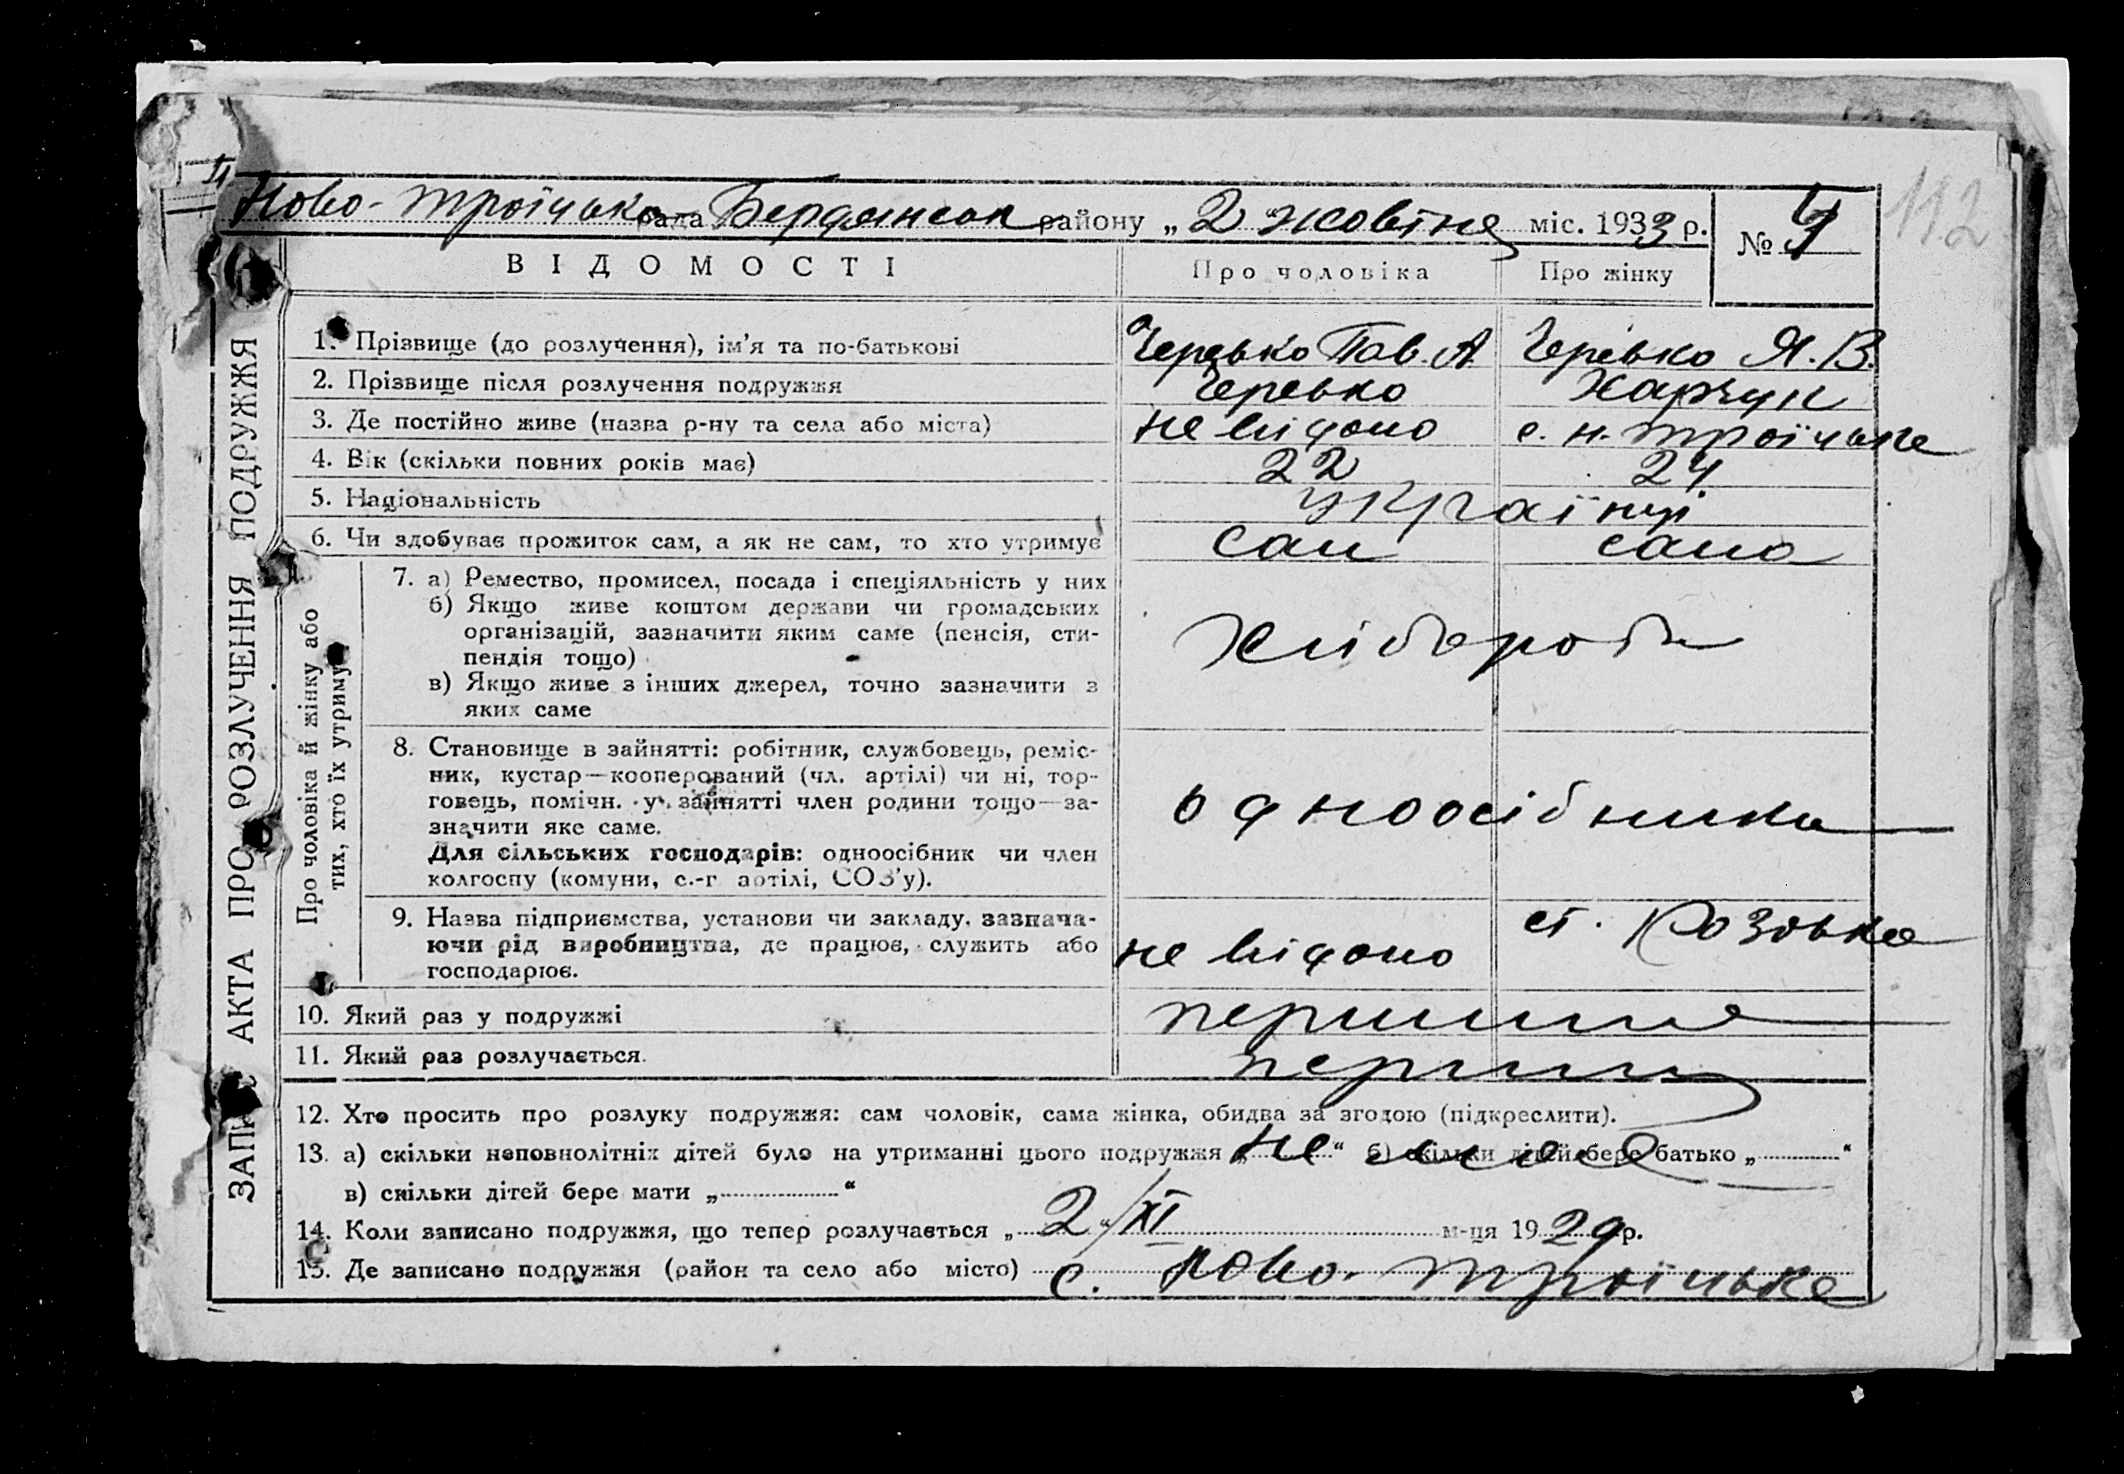 112
Ново-Троїцька рада Бердянськ району „2" жовтня міс. 1933 р. № 4
ВІДОМОСТІ Про чоловіка Про жінку
ЗАПИС АКТА ПРО РОЗЛУЧЕННЯ ПОДРУЖЖЯ
1. Прізвище (до розлучення), ім'я та по-батькові Черевко Пав. А. Черевко Я. В.
2. Прізвище після розлучення подружжя Черевко Харчук
3. Де постійно живе (назва р-ну та села або міста) не відомо с. н. Троїцьке
4. Вік (скільки повних років має) 22 24
5. Національність українці
6. Чи здобуває прожиток сам, а як не сам, то хто утримує сам сама
Про чоловіка й жінку або
тих, хто їх утримує
7. а) Ремество, промисел, посада і спеціяльність у них
б) Якщо живе коштом держави чи громадських
організацій, зазначити яким саме (пенсія, сти-
пендія тощо) хлібороби
в) Якщо живе з інших джерел, точно зазначити з
яких саме
8. Становище в зайнятті: робітник, службовець, реміс-
ник, кустар—кооперований (чл. артілі) чи ні, тор-
говець, помічн. у зайнятті член родини тощо—за-
значити яке саме. одноосібники
Для сільських господарів: одноосібник чи член
колгоспу (комуни, с.-г артілі, СОЗ'у).
9. Назва підприємства, установи чи закладу, зазнача-
ючи рід виробництва, де працює, служить або не відомо ст. Розовка
господарює.
10. Який раз у подружжі перший
11. Який раз розлучається. перший
12. Хто просить про розлуку подружжя: сам чоловік, сама жінка, обидва за згодою (підкреслити).
13. а) скільки неповнолітніх дітей було на утриманні цього подружжя „не" б) скільки дітей бере батько „ "
в) скільки дітей бере мати „ "
14. Коли записано подружжя, що тепер розлучається „2"/XI м-ця 1929 р.
15. Де записано подружжя (район та село або місто) с. Ново-Троїцьке